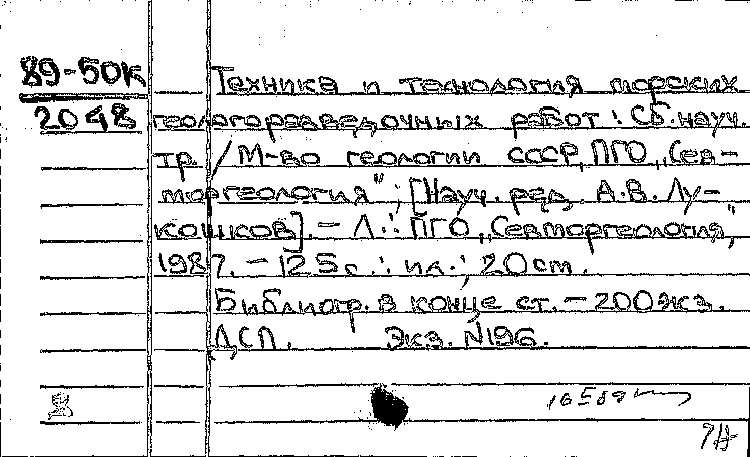 89-50к
2048
Техника и технология морских
геологоразведочных работ : Сб. науч.
тр. / М-во геологии СССР, ПГО „Сев-
моргеология"; [Науч. ред. А.В. Лу-
кошков]. - Л. : ПГО „Севморгеология",
1987. - 125 с. : ил. ; 20 см.
Библиогр. в конце ст. - 200 экз.
ДСП. Экз. №196.